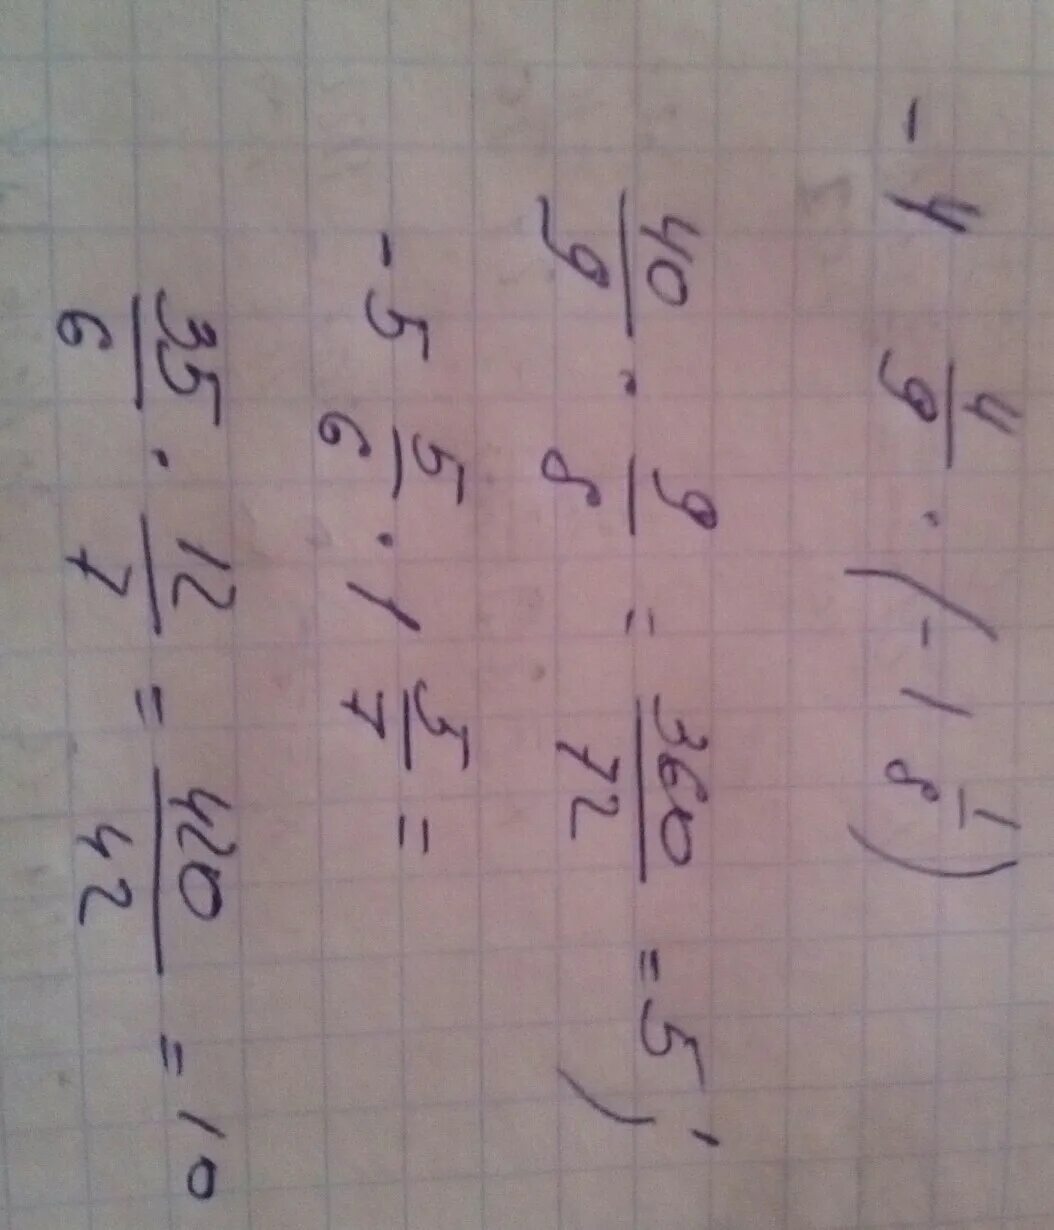 - 4 4/9 · (- 1 1/8)
40/9 · 9/8 = 360/72 = 5;
- 5 5/6 · 1 5/7 =
35/6 · 12/7 = 420/42 = 10